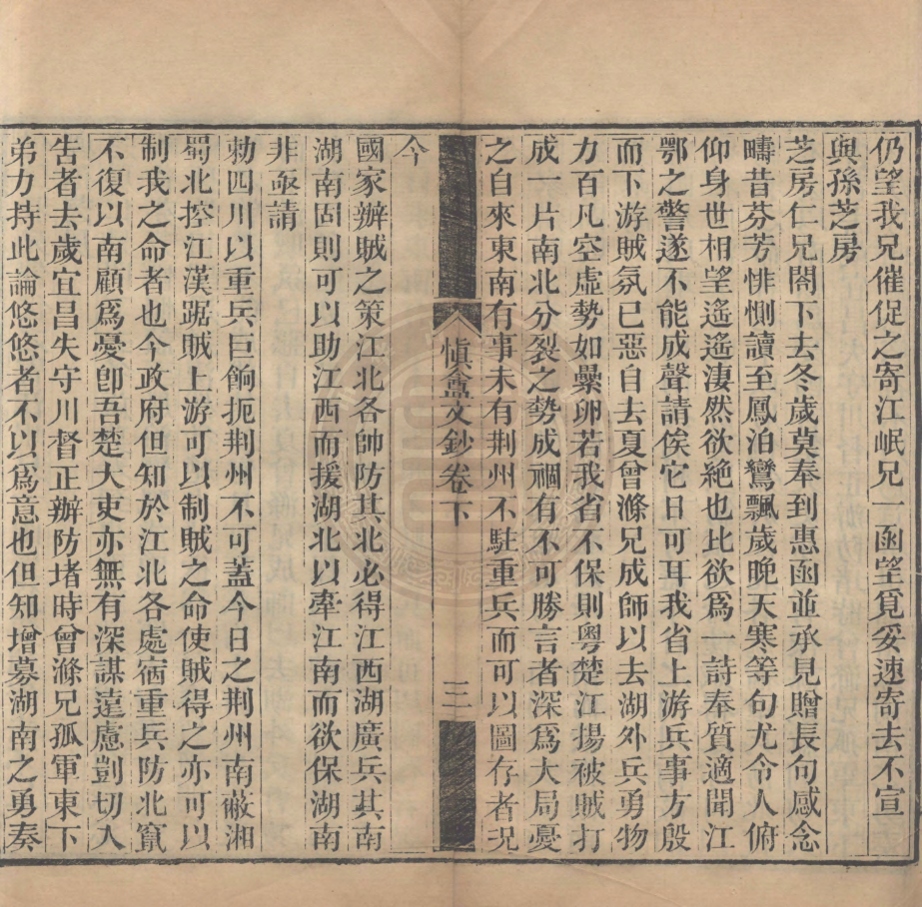 仍望我兄催促之寄江岷兄一函望覓妥速寄去不宣
與孫芝房
芝房仁兄閣下去冬歲莫奉到惠函並承見贈長句感念
疇昔芬芳悱惻讀至鳳泊鸞飄歲晚天寒等句尤令人俯
仰身世相望遙遙淒然欲絕也比欲爲一詩奉質適聞江
鄂之警遂不能成聲請俟它日可耳我省上游兵事方殷
而下游賊氛已惡自去夏曾滌兄成師以去湖外兵勇物
力百凡空虛勢如纍卵若我省不保則粵楚江揚被賊打
成一片南北分裂之勢成禍有不可勝言者深爲大局憂
之自來東南有事未有荆州不駐重兵而可以圖存者况
愼盦文鈔卷下
三
今
國家辦賊之策江北各帥防其北必得江西湖廣兵其南
湖南固則可以助江西而援湖北以牽江南而欲保湖南
非亟請
勅四川以重兵巨餉扼荆州不可蓋今日之荆州南蔽湘
蜀北控江漢踞賊上游可以制賊之命使賊得之亦可以
制我之命者也今政府但知於江北各處宿重兵防北竄
不復以南顧爲憂卽吾楚大吏亦無有深謀遠慮剴切入
告者去歲宜昌失守川督正辦防堵時曾滌兄孤軍東下
弟力持此論悠悠者不以爲意也但知增募湖南之勇奏